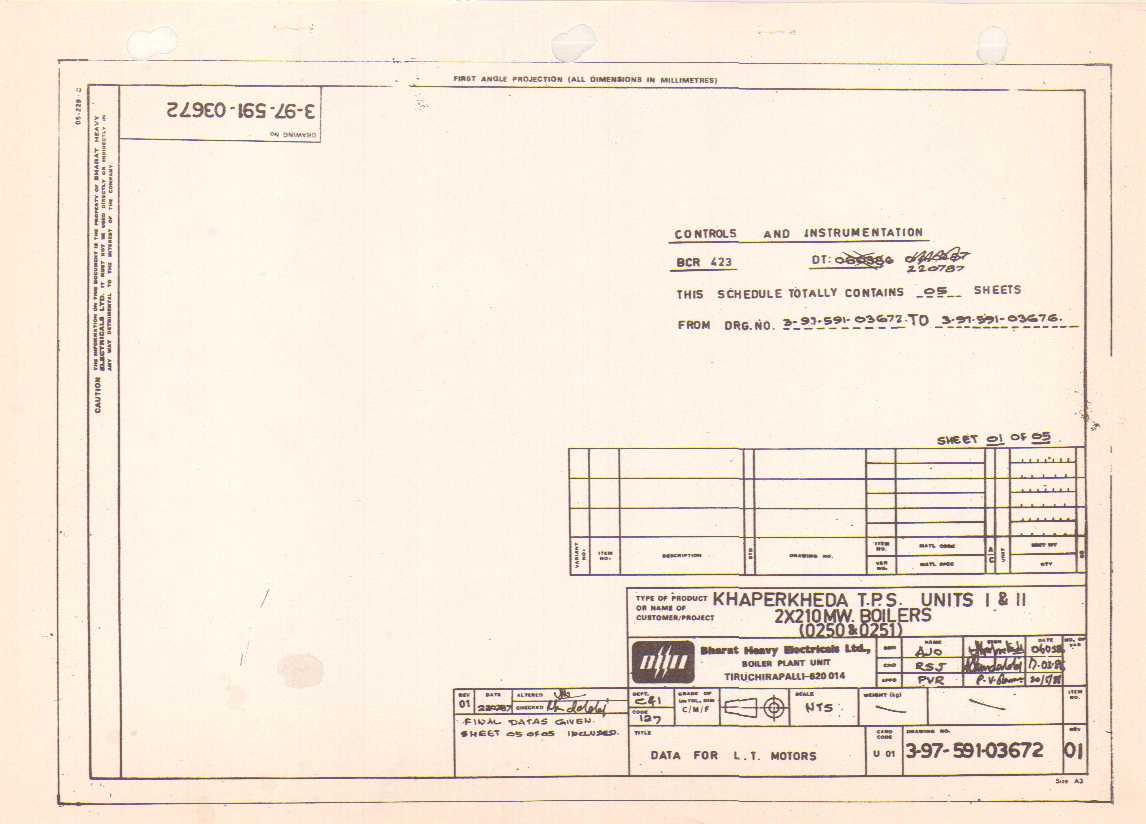 FIRST ANGLE PROJECTION (ALL DIMENSIONS IN MILLIMETRES)
05-228 C
3-97-591-03672
DRAWING NO
CAUTION THE INFORMATION ON THIS DOCUMENT IS THE PROPERTY OF BHARAT HEAVY
ELECTRICALS LTD. IT MUST NOT BE USED DIRECTLY OR INDIRECTLY IN
ANY WAY DETRIMENTAL TO THE INTEREST OF THE COMPANY.
CONTROLS AND INSTRUMENTATION
BCR 423 DT:
220787
THIS SCHEDULE TOTALLY CONTAINS 05 SHEETS
FROM DRG.NO. 3-97-591-03672 TO 3-97-591-03676.
SHEET 01 OF 05
VARIANT NO. ITEM NO. DESCRIPTION STD DRAWING NO. ITEM NO. MATL CODE A UNIT UNIT WT
VER NO. MATL SPEC C QTY
TYPE OF PRODUCT KHAPERKHEDA T.P.S. UNITS I & II
OR NAME OF
CUSTOMER/PROJECT 2X210MW. BOILERS
(0250 & 0251)
Bharat Heavy Electricals Ltd.,
BOILER PLANT UNIT
TIRUCHIRAPALLI-620 014
NAME SIGN DATE NO. OF VAR
AJO
CHD RSJ
APPD PVR
REV 01 DATE 220787 ALTERED
CHECKED
FINAL DATAS GIVEN.
SHEET 05 OF 05 INCLUDED.
DEPT. C&I
CODE 127
GRADE OF
UNTOL. DIM
C/M/F
SCALE
NTS
WEIGHT (kg)
ITEM NO.
TITLE
DATA FOR L.T. MOTORS
CARD CODE
U 01
DRAWING NO.
3-97-591-03672
REV
01
Size A3